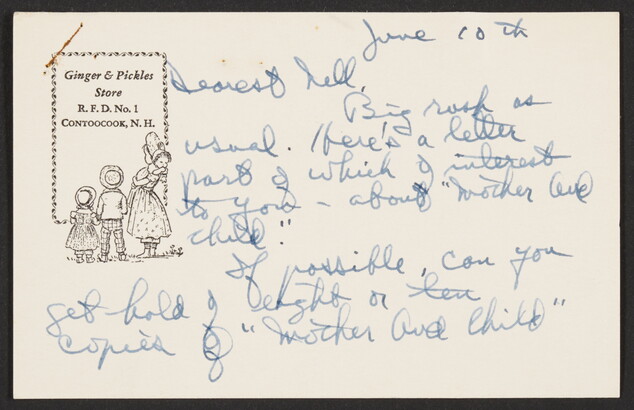 Ginger & Pickles
Store
R. F. D. No. 1
CONTOOCOOK, N. H.
June 10th
Dearest Nell,
Big rush as
usual. Here's a letter
part of which of interest
to you - about "Mother and
child."
If possible, can you
get hold of eight or ten
copies of "Mother and Child"